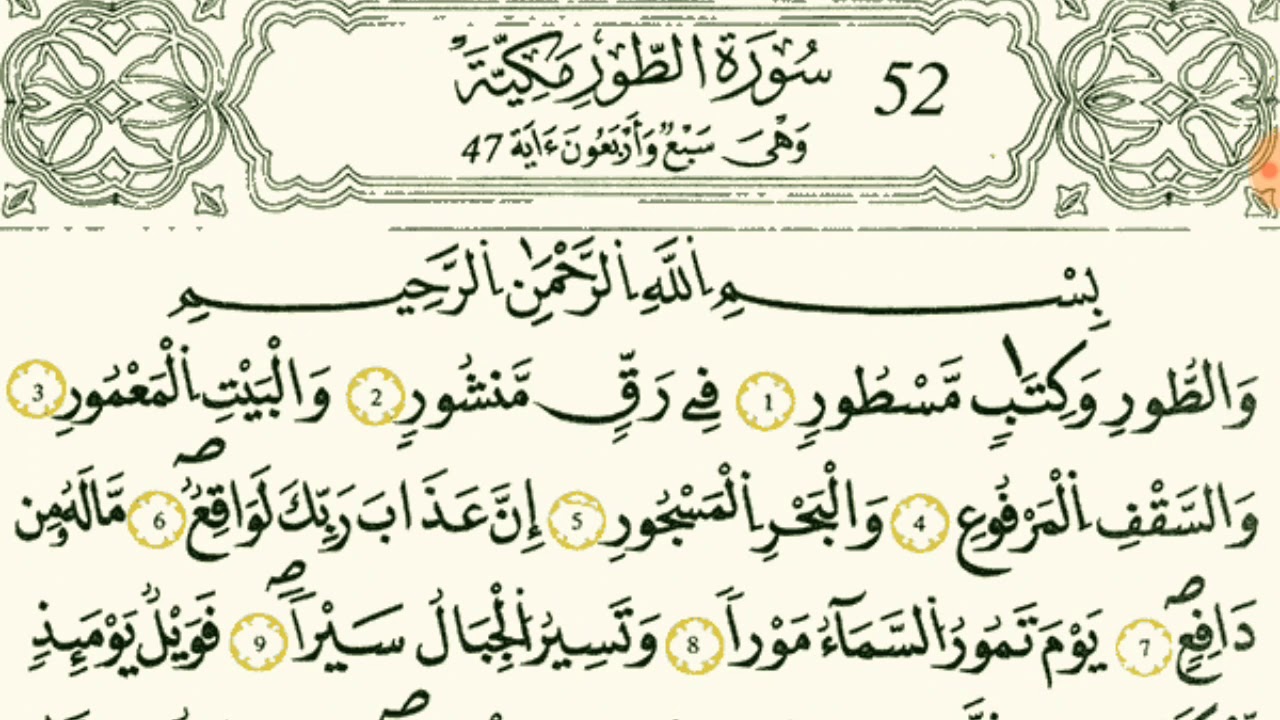 سُورَةُ الطُّورِ مَكِّيَّةٌ 52
وَهْىَ سَبْعٌ وَأَرْبَعُونَ ءَايَةً 47
بِسْمِ اِ۬للَّهِ اِ۬لرَّحْمَٰنِ اِ۬لرَّحِيمِ
وَالطُّورِ وَكِتَٰبٍ مَّسْطُورٍ 1 فِے رَقٍّ مَّنشُورٍ 2 وَالْبَيْتِ اِ۬لْمَعْمُورِ 3
وَالسَّقْفِ اِ۬لْمَرْفُوعِ 4 وَالْبَحْرِ اِ۬لْمَسْجُورِ 5 إِنَّ عَذَابَ رَبِّكَ لَوَٰقِعٌ صە 6 مَّا لَهُۥ مِن
دَافِعٍ صە 7 يَوْمَ تَمُورُ اُ۬لسَّمَآءُ مَوْراً 8 وَتَسِيرُ اُ۬لْجِبَالُ سَيْراً صە 9 فَوَيْلٌ يَوْمَئِذٍ